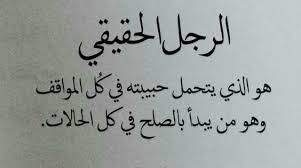 الرجل الحقيقي
هو الذي يتحمل حبيبته في كُل المواقف
وهو من يبدأ بالصلح في كل الحالات.